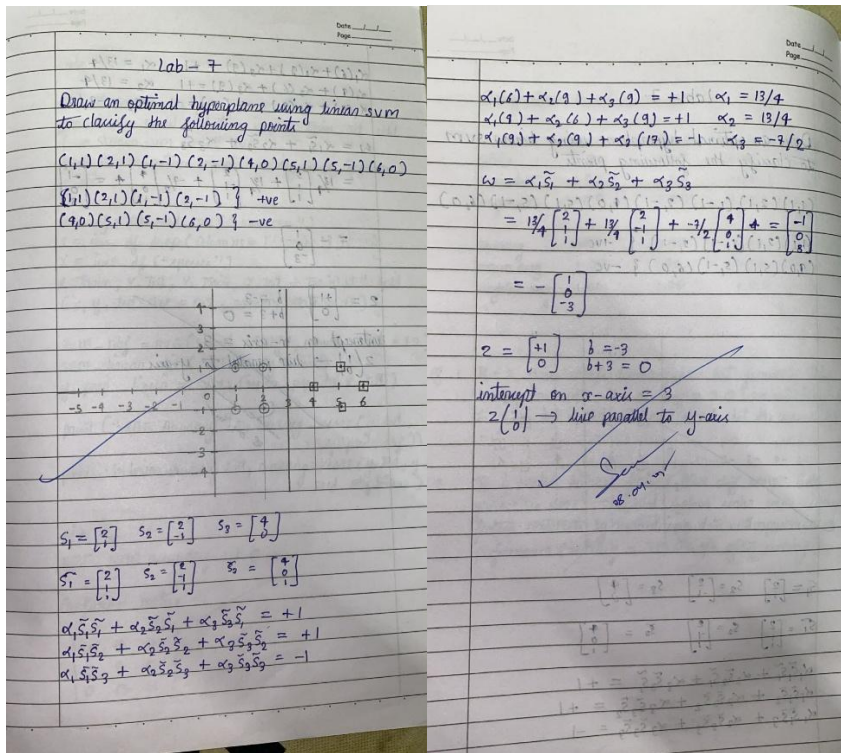 Date
Page
Lab - 7
Draw an optimal hyperplane using linear SVM
to classify the following points
(1,1) (2,1) (1,-1) (2,-1) (4,0) (5,1) (5,-1) (6,0)
(1,1) (2,1) (1,-1) (2,-1) } +ve
(4,0) (5,1) (5,-1) (6,0) } -ve
4
3
2
1
-5 -4 -3 -2 -1 0 1 2 3 4 5 6
-1
-2
-3
4
S₁ = [2 1] S₂ = [2 -1] S₃ = [4 0]
S̃₁ = [2 1 1] S̃₂ = [2 -1 1] S̃₃ = [4 0 1]
α₁S̃₁S̃₁ + α₂S̃₂S̃₁ + α₃S̃₃S̃₁ = +1
α₁S̃₁S̃₂ + α₂S̃₂S̃₂ + α₃S̃₃S̃₂ = +1
α₁S̃₁S̃₃ + α₂S̃₂S̃₃ + α₃S̃₃S̃₃ = -1
Date
Page
α₁(6) + α₂(4) + α₃(9) = +1 α₁ = 13/4
α₁(4) + α₂(6) + α₃(9) = +1 α₂ = 13/4
α₁(9) + α₂(9) + α₃(17) = -1 α₃ = -7/2
ω = α₁S̃₁ + α₂S̃₂ + α₃S̃₃
= 13/4 [2 1 1] + 13/4 [2 -1 1] + -7/2 [4 0 1] = [-1 0 3]
= - [1 0 -3]
2 = [+1 0] b = -3
b+3 = 0
intercept on x-axis = 3
2 (1 0) → line parallel to y-axis